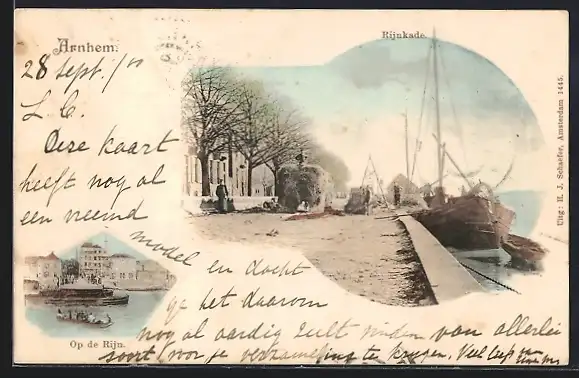 Arnhem.
Rijnkade.
28 Sept. / 00
L. C.
Deze kaart
heeft nog al
een vreemd
model
en dacht
ge het daarom
nog al aardig zult vinden van allerlei
soort voor je verzameling te krijgen, Veel liefs van
Op de Rijn.
Uitg: H. J. Schaefer, Amsterdam 1445.